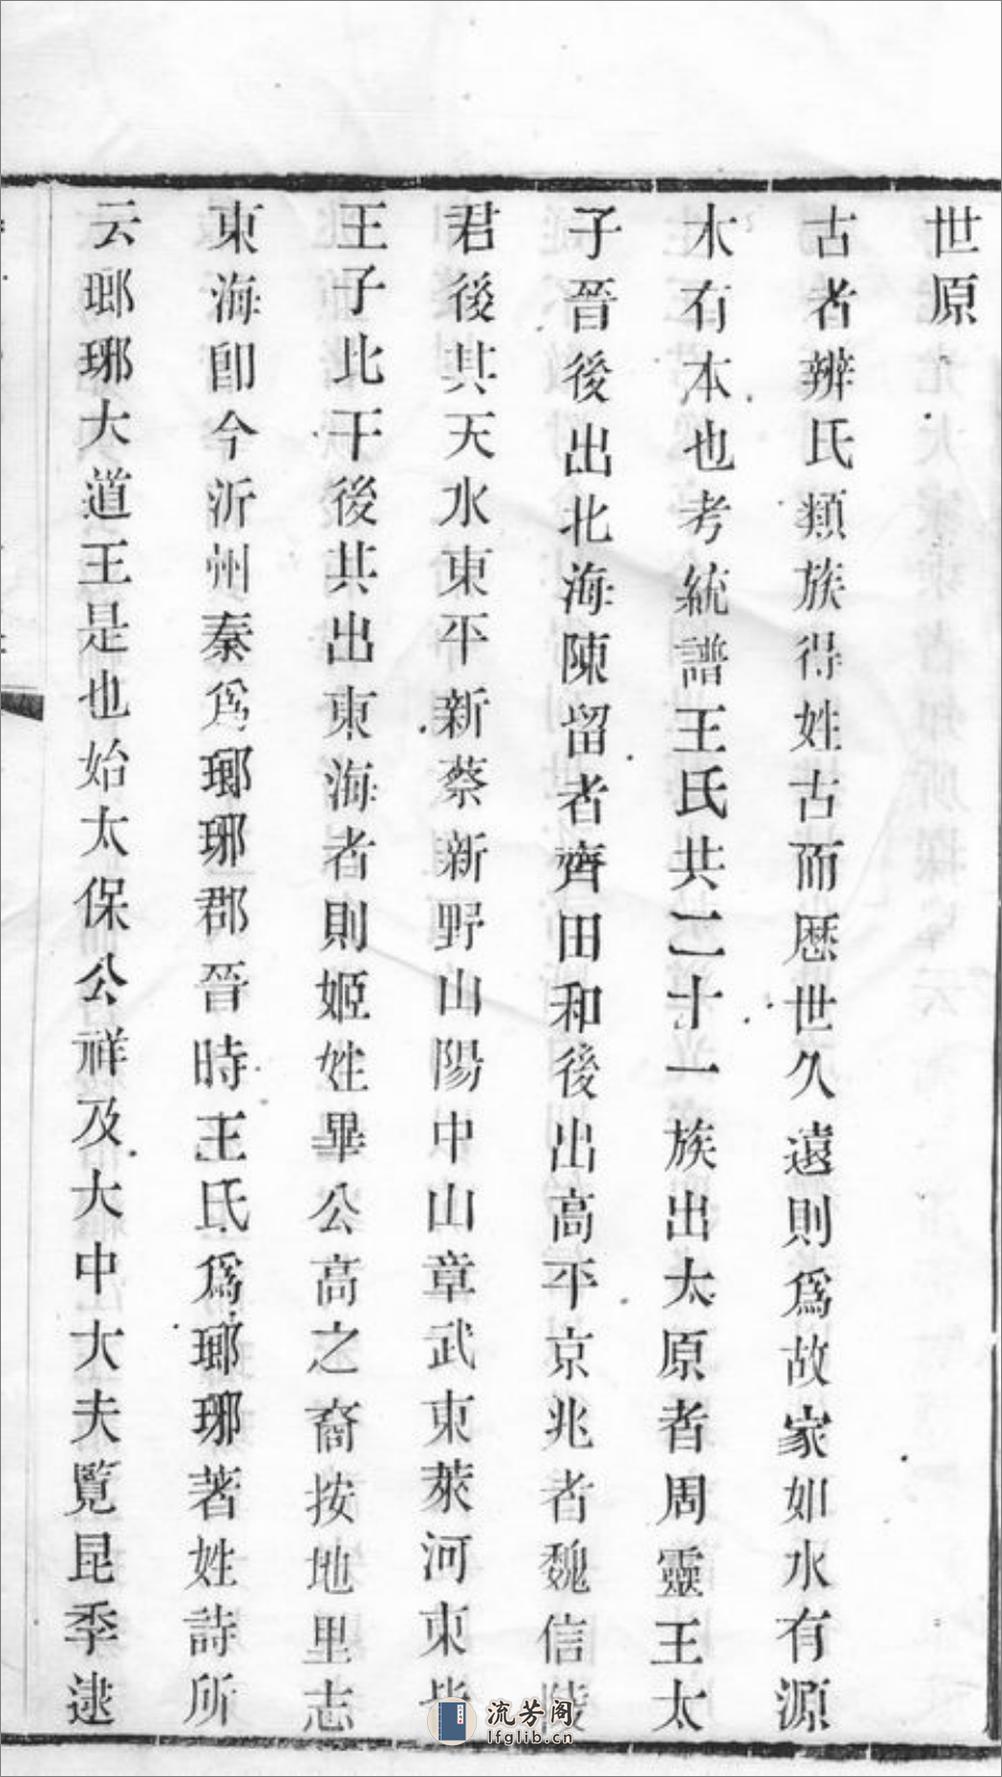 世原
古者辨氏類族得姓古而歷世久遠則爲故家如水有源
木有本也考統譜王氏共二十一族出太原者周靈王太
子晉後出北海陳留者齊田和後出高平京兆者魏信陵
君後其天水東平新蔡新野山陽中山章武東萊河東皆
王子比干後其出東海者則姬姓畢公高之裔按地里志
東海卽今沂州秦爲瑯琊郡晉時王氏爲瑯琊著姓詩所
云瑯琊大道王是也始太保公祥及大中大夫覽昆季逮
流芳阁
lfglib.cn